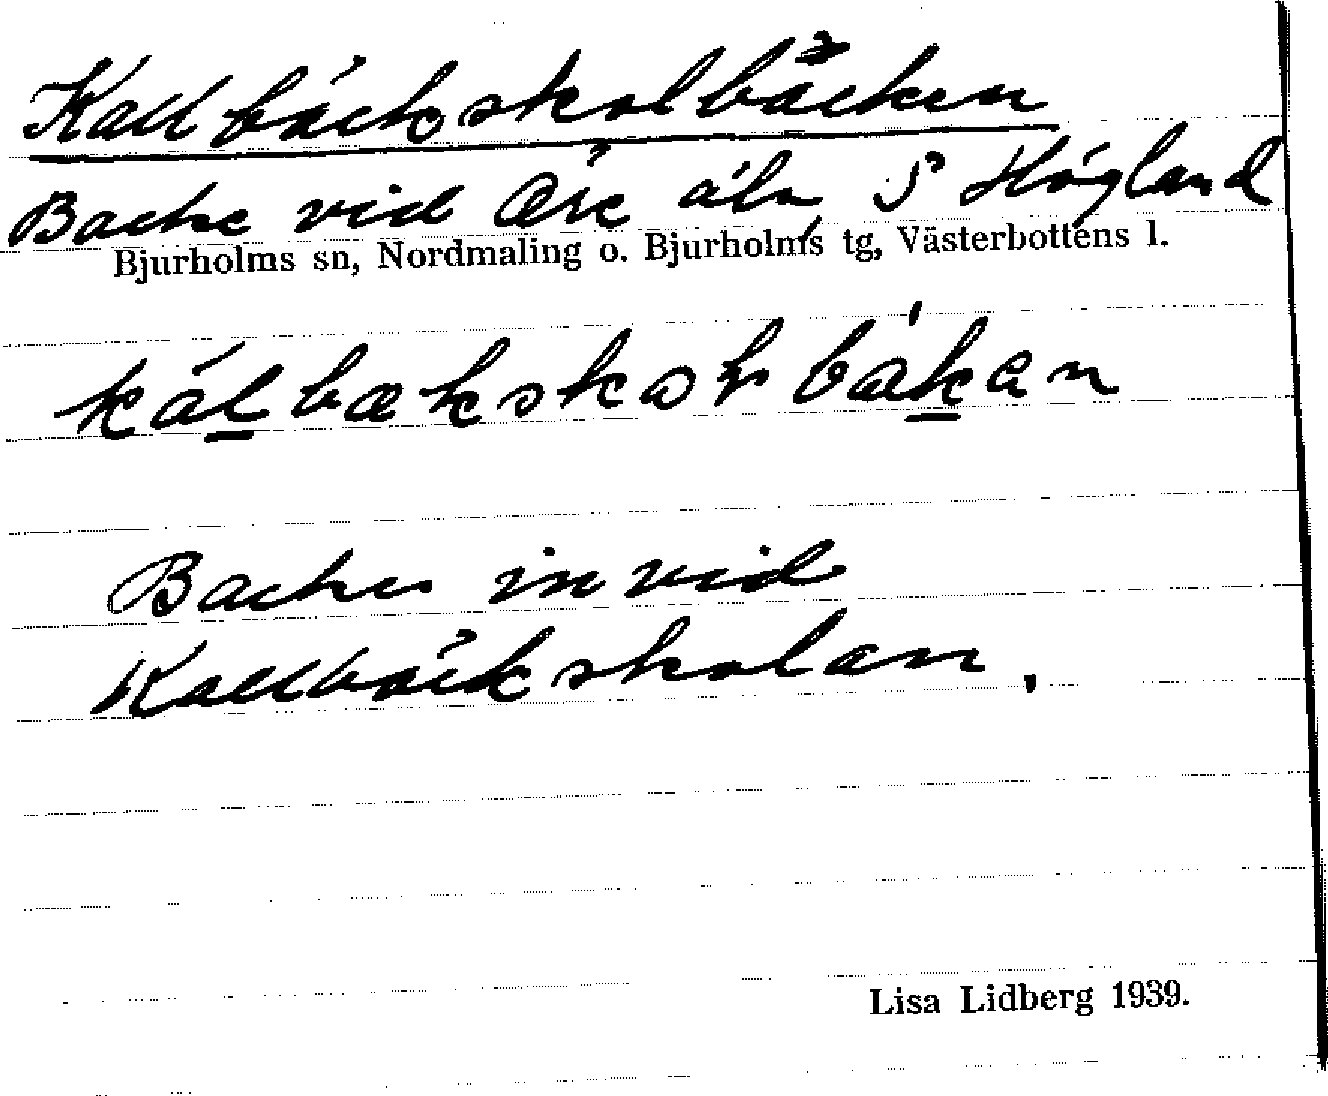 Kallbäckskolbäcken
Bäcke vid Öre älv, S Högland
Bjurholms sn, Nordmaling o. Bjurholms tg, Västerbottens l.
kálbækskoḷbækan
Bäcken invid
Kallbäckskolan.
Lisa Lidberg 1939.